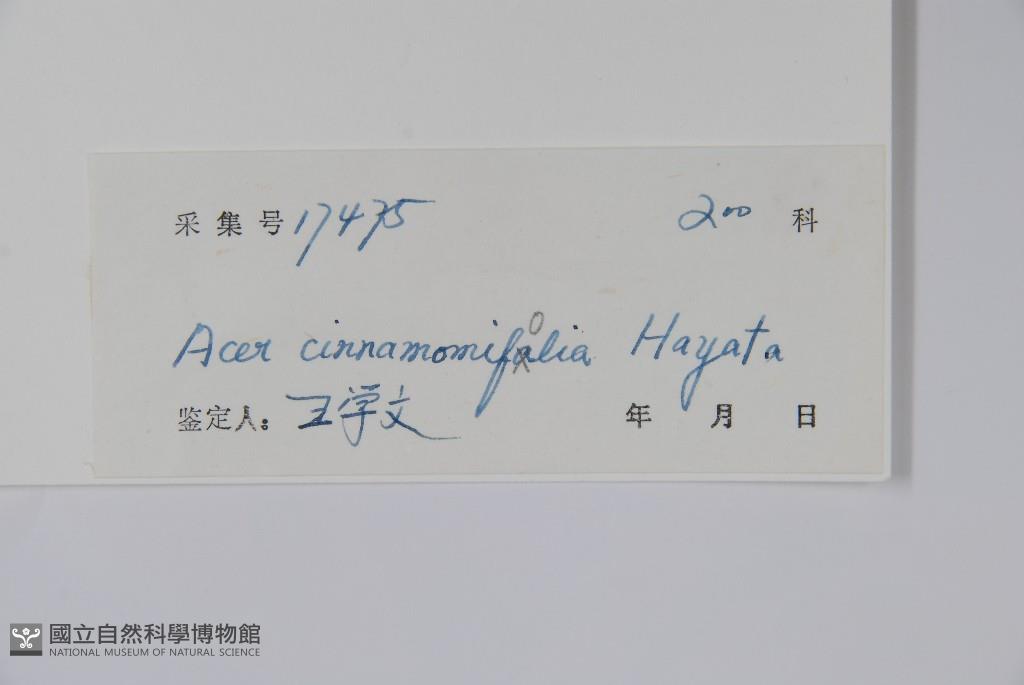 采集号 17475 200 科
Acer cinnamomifolia Hayata
鉴定人: 王学文 年 月 日
國立自然科學博物館
NATIONAL MUSEUM OF NATURAL SCIENCE